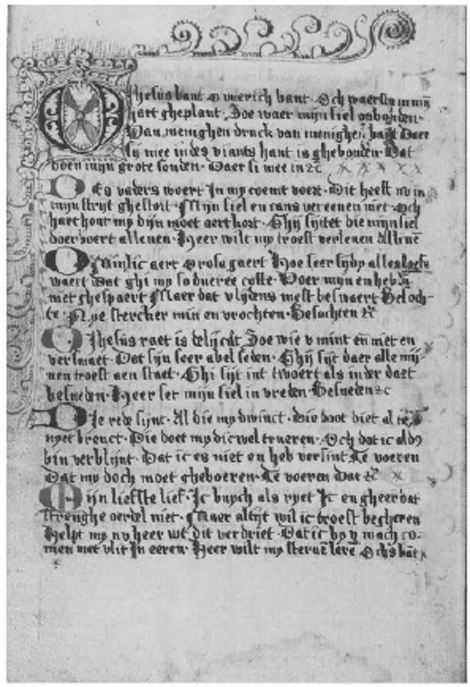 Jhesus bant o werich bant Och waerstu in mijn
hart gheplant Soe waer mijn liel onbonden
Van menighen druck van menighen
Jn mee in des viants hant is ghebonden Dat
doen mijn grote sonden Daer li mee in &c
Des vaders woert Jn my coemt voert Dit heeft nv in
mijn strijt ghestoirt Mijn siel en cans vercenen niet Och
hart hout my dijn moet aert kort Ghij sijttet die mijn siel
doer boert alleuen Heer wilt my troest verlenen
O Minlic aert O rosegaert Hoe seer
waert Dat ghi my so duere coste Voer mij en heb
niet ghespaert Maer dat vlijdens mest beswaert Beloch
te Nye stercker min en vrochten Besuchten &c
O Jhesus raet is Soe wie v mint en niet en
versmaet Dat sijn seer abel seden Ghij sijt daer alle mij
nen troest aen staet Ghi sijt int twoert als in der daet
beleuden Heer set mijn siel in vreden Beleuden &c
Die rede sijnt Al die my dwinct Die doot diet al
nyet brenct Die doet my dicwel trueren Och dat ic aldus
bin verblijnt Dat ic es niet en heb versint Te voeren
Dat my doch moet gheboeren Te voeren Dat &c
Mijn liefste lief Jc buych als ryet Jc en gheer dat
strenghe oerdel niet Maer altijt wil ic troest begheren
Helpt my nv heer wt dit verdriet Dat ic by v mach co
men met vlit Jn eeren Heer wilt my steruen lere Och bat